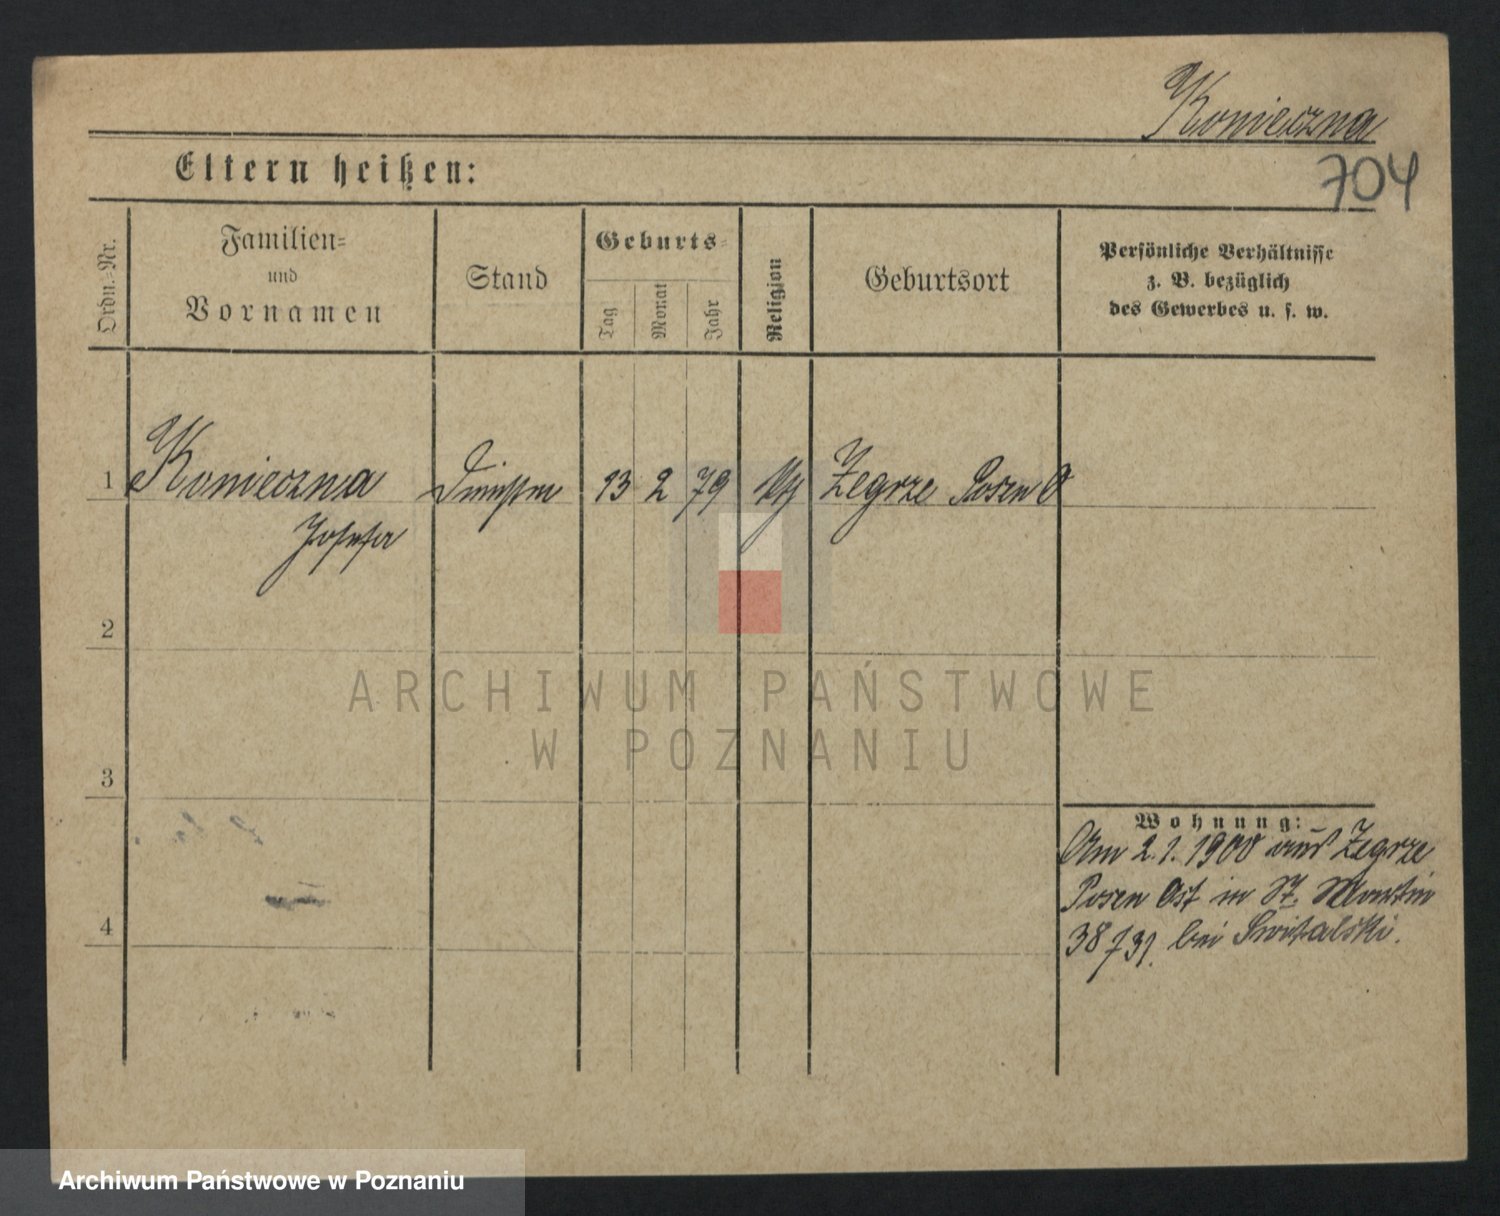 Konieczna
704
Eltern heißen:
Ordn.-Nr.
Familien-
und
Vornamen
Stand
Geburts-
Tag
Monat
Jahr
Religion
Geburtsort
Persönliche Verhältnisse
z. B. bezüglich
des Gewerbes u. s. w.
1 Konieczna 13 2 79 Zegrze Posen O
Josefa
2
3
4
Wohnung:
Am 2.1.1900 aus Zegrze
Posen Ost in St. Martin
38 bei Switalski.
ARCHIWUM PAŃSTWOWE
W POZNANIU
Archiwum Państwowe w Poznaniu